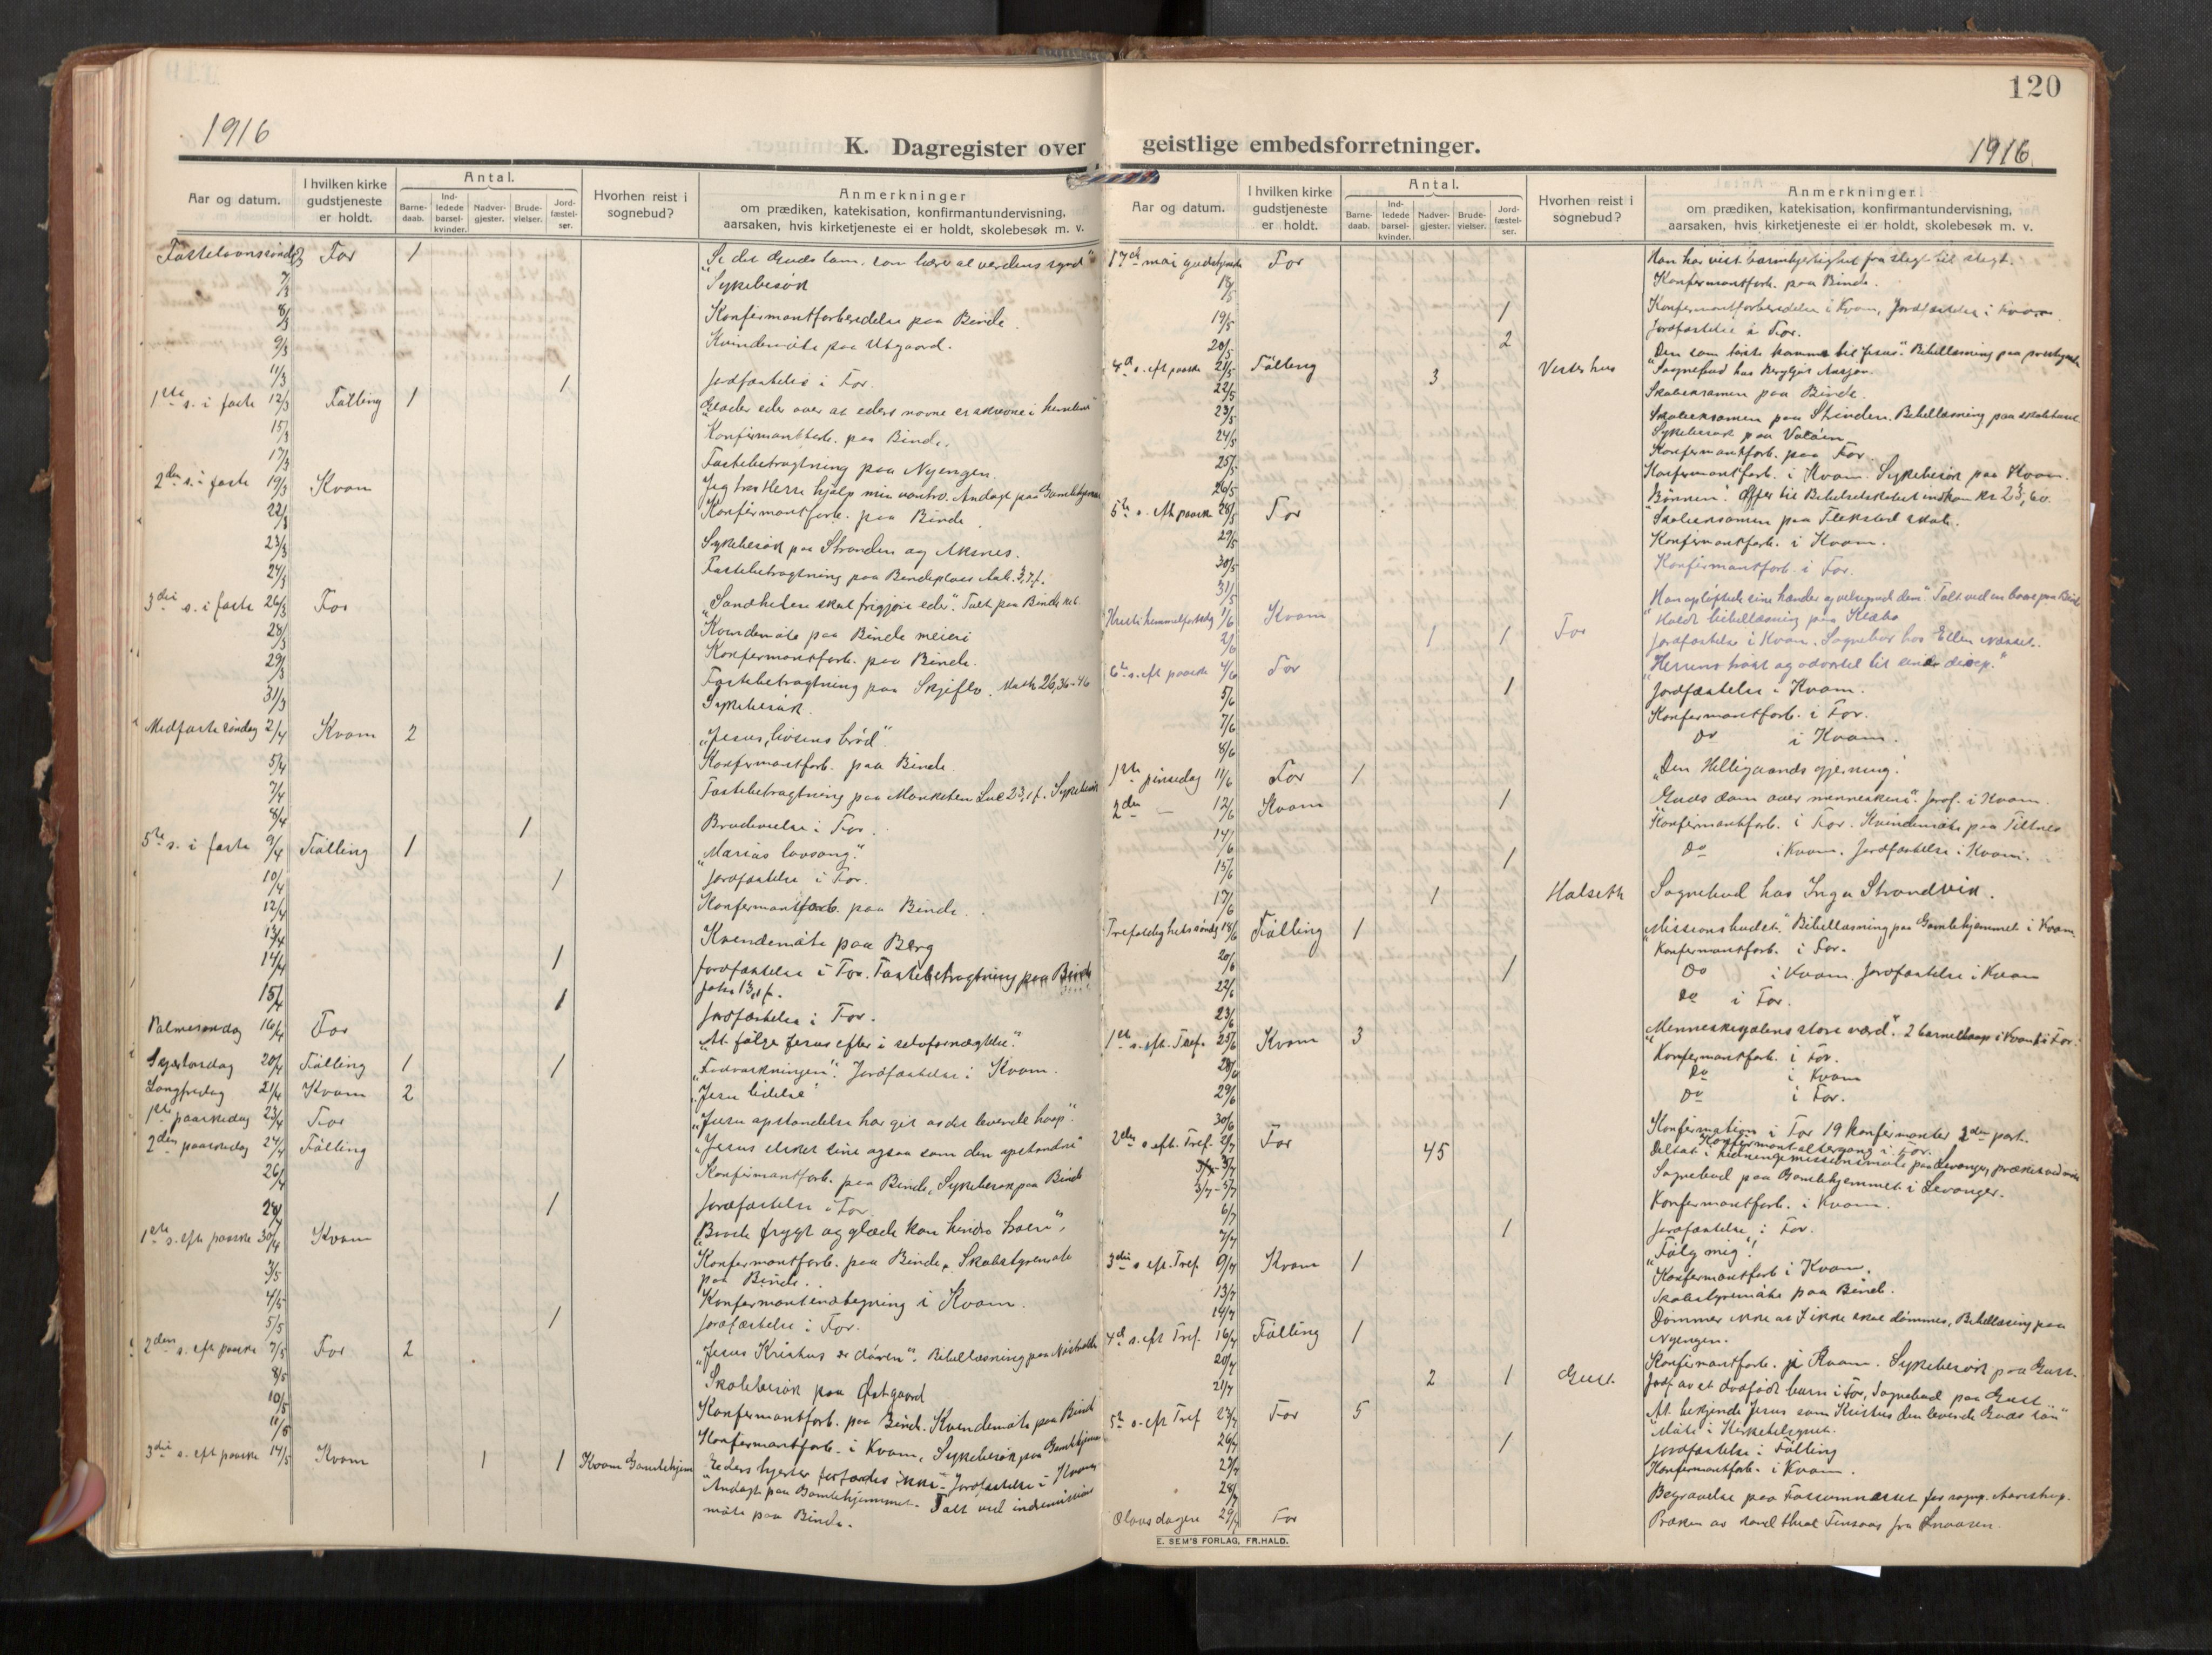 120
1916
K. Dagregister over geistlige embedsforretninger.
1916
Aar og datum.
I hvilken kirke gudstjeneste er holdt.
Antal.
Barne-daab.
Ind-ledede barsel-kvinder.
Nadver-gjester.
Brude-vielser.
Jord-fæstel-ser.
Hvorhen reist i sognebud?
Anmerkninger
om prædiken, katekisation, konfirmantundervisning,
aarsaken, hvis kirketjeneste ei er holdt, skolebesøk m. v.
Fastelavnssøndag For 1 "Se det Guds lam, som bærer al verdens synd"
7/3 Sykebesøk
8/3 Konfirmantforberedelse paa Binde.
9/3 Kvindemøte paa Utgaard.
11/3 1 Jordfæstelse i For.
1ste s. i faste 12/3 Følling 1 "Glæder eder over at eders navne er skrevne i himlene"
15/3 Konfirmantforb. paa Binde.
17/3 Fastebetragtning paa Nyengen.
2den s. i faste 19/3 Kvam Jeg tror Herre hjælp min vantro. Andagt paa Gamlehjemmet
22/3 Konfirmantforb. paa Binde.
23/3 Sykebesøk paa Stranden og Aksnes.
24/3 Fastebetragtning paa Bindeplass
3die s. i faste 26/3 For "Sandheten skal frigjøre eder". Talt paa Binde
28/3 Kvindemøte paa Binde meieri
29/3 Konfirmantforb. paa Binde.
31/3 Fastebetragtning paa Skjeflo. Math 26,36-46
Sykebesøk.
Midfaste søndag 2/4 Kvam 2 "Jesus, livsens brød"
5/4 Konfirmantforb. paa Binde.
7/4 Fastebetragtning paa Luc 23,1 f. Sykebesøk
8/4 1 Brudevielse i For.
5te s. i faste 9/4 Følling 1 "Marias lovsang."
10/4 1 Jordfæstelse i For.
12/4 Konfirmantforb. paa Binde.
13/4 Kvindemøte paa Berg
14/4 1 Jordfæstelse i For. Fastebetragtning paa Binde
Joh. 13,1 f.
15/4 1 Jordfæstelse i For.
Palmesøndag 16/4 For "At følge Jesus efter i selvfornægtelse."
Skjertorsdag 20/4 Følling 1 1 "Fodvaskningen". Jordfæstelse i Kvam.
Langfredag 21/4 Kvam 2 "Jesu lidelse"
1ste paaskedag 23/4 For "Jesu opstandelse har git os det levende haap".
2den paaskedag 24/4 Følling "Jesus elsker sine ogsaa som den opstandne"
26/4 Konfirmantforb. paa Binde, Sykebesøk paa Binde
28/4 1 Jordfæstelse i For
1ste s. eft paaske 30/4 Kvam "Baade frygt og glæde kan hindre troen".
3/5 Konfirmantforb. paa Binde. Skolestyremøte
paa Binde.
4/5 Konfirmantindtegning i Kvam.
5/5 1 Jordfæstelse i For.
2den s. eft paaske 7/5 For 2 "Jesus Kristus er døren". Bibellæsning paa
8/5 Skolebesøk paa Østgaard
10/5 Konfirmantforb. paa Binde. Kvindemøte paa Binde
11/5 Konfirmantforb. i Kvam, Sykebesøk paa Gamlehjemmet
3die s. eft paaske 14/5 Kvam 1 1 Kvam Gamlehjem "Eders hjerter forfærdes ikke". Jordfæstelse i Kvam
Andagt paa Gamlehjemmet. Talt ved indremissions
møte paa Binde.
Aar og datum.
I hvilken kirke gudstjeneste er holdt.
Antal.
Barne-daab.
Ind-ledede barsel-kvinder.
Nadver-gjester.
Brude-vielser.
Jord-fæstel-ser.
Hvorhen reist i sognebud?
Anmerkninger.
om prædiken, katekisation, konfirmantundervisning,
aarsaken, hvis kirketjeneste ei er holdt, skolebesøk m. v.
17de mai gudstjeneste For Han har vist barmhjertighet fra slegt til slegt.
Konfirmantforb. paa Binde.
19/5 1 Konfirmantforberedelse i Kvam, Jordfæstelse i Kvam.
20/5 2 Jordfæstelse i For.
4de s. eft paaske 21/5 Følling 3 Vesterhus "Den som tørste komme til Jesus". Bibellæsning paa
Sognebud hos
22/5 Skoleeksamen paa Binde.
23/5 Skoleeksamen paa Stranden. Bibellæsning paa skolehuset
24/5 Sykebesøk paa
25/5 Konfirmantforb. paa For.
26/5 Konfirmantforb. i Kvam. Sykebesøk paa Kvam.
5te s. eft paaske 28/5 For "Bønnen". Offer til Bibelselskabet indkom kr 23,60.
29/5 Skoleeksamen paa Flekstad skole.
30/5 Konfirmantforb. i Kvam.
31/5 Konfirmantforb. i For.
Kristi himmelfartsdag 1/6 Kvam "Han opløftede sine hænder og velsignet dem". Talt ved en baare paa Binde
Holdt bibellæsning paa
2/6 1 1 For Jordfæstelse i Kvam. Sognebud hos Ellen
6te s. eft paaske 4/6 For "Herrens trøst og advarsel til sine disip."
5/6 1 Jordfæstelse i Kvam.
7/6 Konfirmantforb. i For.
8/6 Do i Kvam.
1ste pinsedag 11/6 For 1 "Den Helligaands gjerning".
2den — 12/6 Kvam 1 "Guds dom over menneskene". Jordf. i Kvam.
14/6 Konfirmantforb. i For. Kvindemøte paa Tiltnes
15/6 1 Do i Kvam. Jordfæstelse i Kvam.
17/6 1 Halseth Sognebud hos Inga Strandvik.
Trefoldighetssøndag 18/6 Følling 1 "Missionsbudet". Bibellæsning paa Gamlehjemmet i Kvam.
20/6 Konfirmantforb. i For.
22/6 1 Do i Kvam. Jordfæstelse i Kvam
23/6 Do i For.
1ste s. eft. Tref. 25/6 Kvam 3 "Menneskesjælens store værd". 2 barnedaap i Kvam 1 i For.
28/6 Konfirmantforb. i For.
29/6 Do i Kvam
30/6 Do i For.
2den s eft. Tref. 2/7 For 45 Konfirmation i For 19 konfirmanter
Konfirmantaltergang i For.
3/7 Deltat i hedningemissionsmøte paa Levanger,
3/7 - 5/7 Sognebud paa Gamlehjemmet i Levanger.
6/7 Konfirmantforb. i Kvam.
7/7 1 Jordfæstelse i For.
3die s eft. Tref. 9/7 Kvam 1 "Følg mig"!
13/7 Konfirmantforb i Kvam.
14/7 Skolestyremøte paa Binde.
4de s. eft Tref. 16/7 Følling 1 Dømmer ikke at I ikke skal dømmes, Bibellæsning paa
Nyengen.
20/7 Konfirmantforb. i Kvam. Sykebesøk paa Gust.
21/7 2 1 Gust. Jordf. av et dødfødt barn i For, Sognebud paa Gust
5te s. eft Tref 23/7 For 5 "At bekjende Jesus som Kristus den levende Guds søn"
Møte i Kirketilsynet.
26/7 1 Jordfæstelse i Følling
27/7 Konfirmantforb. i Kvam.
28/7 Begravelse paa Fossumnesset for sogup. Aarestrup.
Olavsdagen 29/7 For Præken av cand theol Finsaas fra Snaasen.
E. SEM'S FORLAG, FR.HALD.